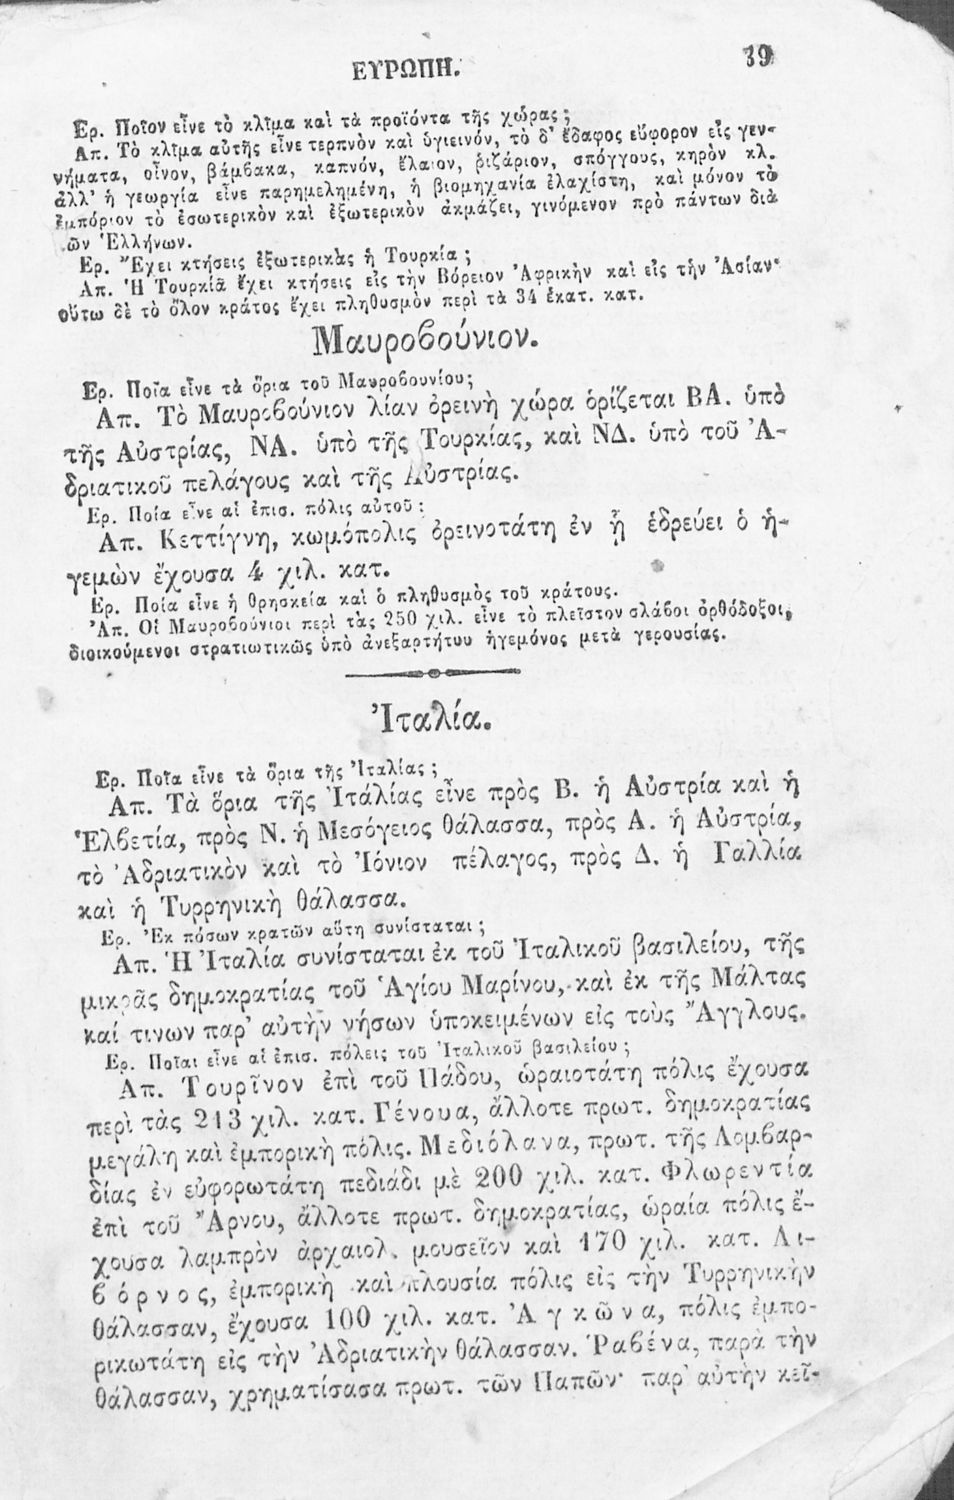 ΕΥΡΩΠΗ.
39
Ερ. Ποῖον εἶνε τὸ κλῖμα καὶ τὰ προϊόντα τῆς χώρας;
Απ. Τὸ κλῖμα αὐτῆς εἶνε τερπνὸν καὶ ὑγιεινόν, τὸ δ' ἔδαφος εὔφορον εἰς γεν-
νήματα, οἶνον, βάμβακα, καπνόν, ἔλαιον, ῥιζάριον, σπόγγους, κηρὸν κλ.
ἀλλ' ἡ γεωργία εἶνε παρημελημένη, ἡ βιομηχανία ἐλαχίστη, καὶ μόνον τὸ
ἐμπόριον τὸ ἐσωτερικὸν καὶ ἐξωτερικὸν ἀκμάζει, γινόμενον πρὸ πάντων διὰ
ῶν Ἑλλήνων.
Ερ. Ἔχει κτήσεις ἐξωτερικὰς ἡ Τουρκία;
Απ. Ἡ Τουρκία ἔχει κτήσεις εἰς τὴν Βόρειον Ἀφρικὴν καὶ εἰς τὴν Ἀσίαν·
οὕτω δὲ τὸ ὅλον κράτος ἔχει πληθυσμὸν περὶ τὰ 34 ἑκατ. κατ.
Μαυροβούνιον.
Ερ. Ποῖα εἶνε τὰ ὅρια τοῦ Μαυροβουνίου;
Απ. Τὸ Μαυροβούνιον λίαν ὀρεινὴ χώρα ὁρίζεται ΒΑ. ὑπὸ
τῆς Αὐστρίας, ΝΑ. ὑπὸ τῆς Τουρκίας, καὶ ΝΔ. ὑπὸ τοῦ Ἀ-
δριατικοῦ πελάγους καὶ τῆς Αὐστρίας.
Ερ. Ποία εἶνε αἱ ἐπισ. πόλις αὐτοῦ;
Απ. Κεττίγνη, κωμόπολις ὀρεινοτάτη ἐν ᾗ ἑδρεύει ὁ ἡ-
γεμὼν ἔχουσα 4 χιλ. κατ.
Ερ. Ποία εἶνε ἡ θρησκεία καὶ ὁ πληθυσμὸς τοῦ κράτους.
Ἀπ. Οἱ Μαυροβούνιοι περὶ τὰς 250 χιλ. εἶνε τὸ πλεῖστον σλάβοι ὀρθόδοξοι,
διοικούμενοι στρατιωτικῶς ὑπὸ ἀνεξαρτήτου ἡγεμόνος μετὰ γερουσίας.
Ἰταλία.
Ερ. Ποῖα εἶνε τὰ ὅρια τῆς Ἰταλίας;
Απ. Τὰ ὅρια τῆς Ἰτάλίας εἶνε πρὸς Β. ἡ Αὐστρία καὶ ἡ
Ἑλβετία, πρὸς Ν. ἡ Μεσόγειος θάλασσα, πρὸς Α. ἡ Αὐστρία,
τὸ Ἀδριατικὸν καὶ τὸ Ἰόνιον πέλαγος, πρὸς Δ. ἡ Γαλλία
καὶ ἡ Τυρρηνικὴ θάλασσα.
Ερ. Ἐκ πόσων κρατῶν αὕτη συνίσταται;
Απ. Ἡ Ἰταλία συνίσταται ἐκ τοῦ Ἰταλικοῦ βασιλείου, τῆς
μικρᾶς δημοκρατίας τοῦ Ἁγίου Μαρίνου, καὶ ἐκ τῆς Μάλτας
καί τινων παρ' αὐτὴν νήσων ὑποκειμένων εἰς τοὺς Ἄγγλους.
Ερ. Ποῖαι εἶνε αἱ ἐπισ. πόλεις τοῦ Ἰταλικοῦ βασιλείου;
Απ. Τουρῖνον ἐπὶ τοῦ Πάδου, ὡραιοτάτη πόλις ἔχουσα
περὶ τὰς 213 χιλ. κατ. Γένουα, ἄλλοτε πρωτ. δημοκρατίας
μεγάλη καὶ ἐμπορικὴ πόλις. Μεδιόλανα, πρωτ. τῆς Λομβαρ-
δίας ἐν εὐφορωτάτῃ πεδιάδι μὲ 200 χιλ. κατ. Φλωρεντία
ἐπὶ τοῦ Ἄρνου, ἄλλοτε πρωτ. δημοκρατίας, ὡραία πόλις ἔ-
χουσα λαμπρὸν ἀρχαιολ. μουσεῖον καὶ 170 χιλ. κατ. Λι-
βόρνος, ἐμπορικὴ καὶ πλουσία πόλις εἰς τὴν Τυρρηνικὴν
θάλασσαν, ἔχουσα 100 χιλ. κατ. Ἀγκῶνα, πόλις ἐμπο-
ρικωτάτη εἰς τὴν Ἀδριατικὴν θάλασσαν. Ῥαβένα, παρὰ τὴν
θάλασσαν, χρηματίσασα πρωτ. τῶν Παπῶν· παρ' αὐτὴν κεῖ-